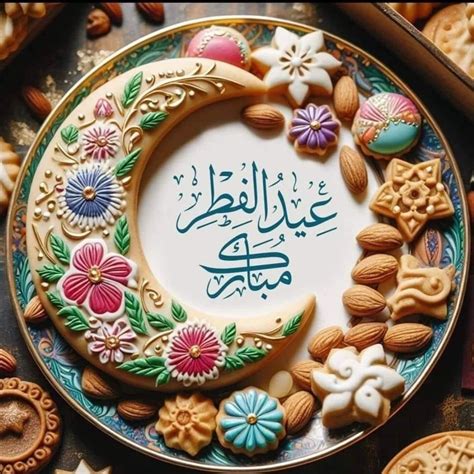 عِيدُ الْفِطْرِ
مُبَارَكٌ